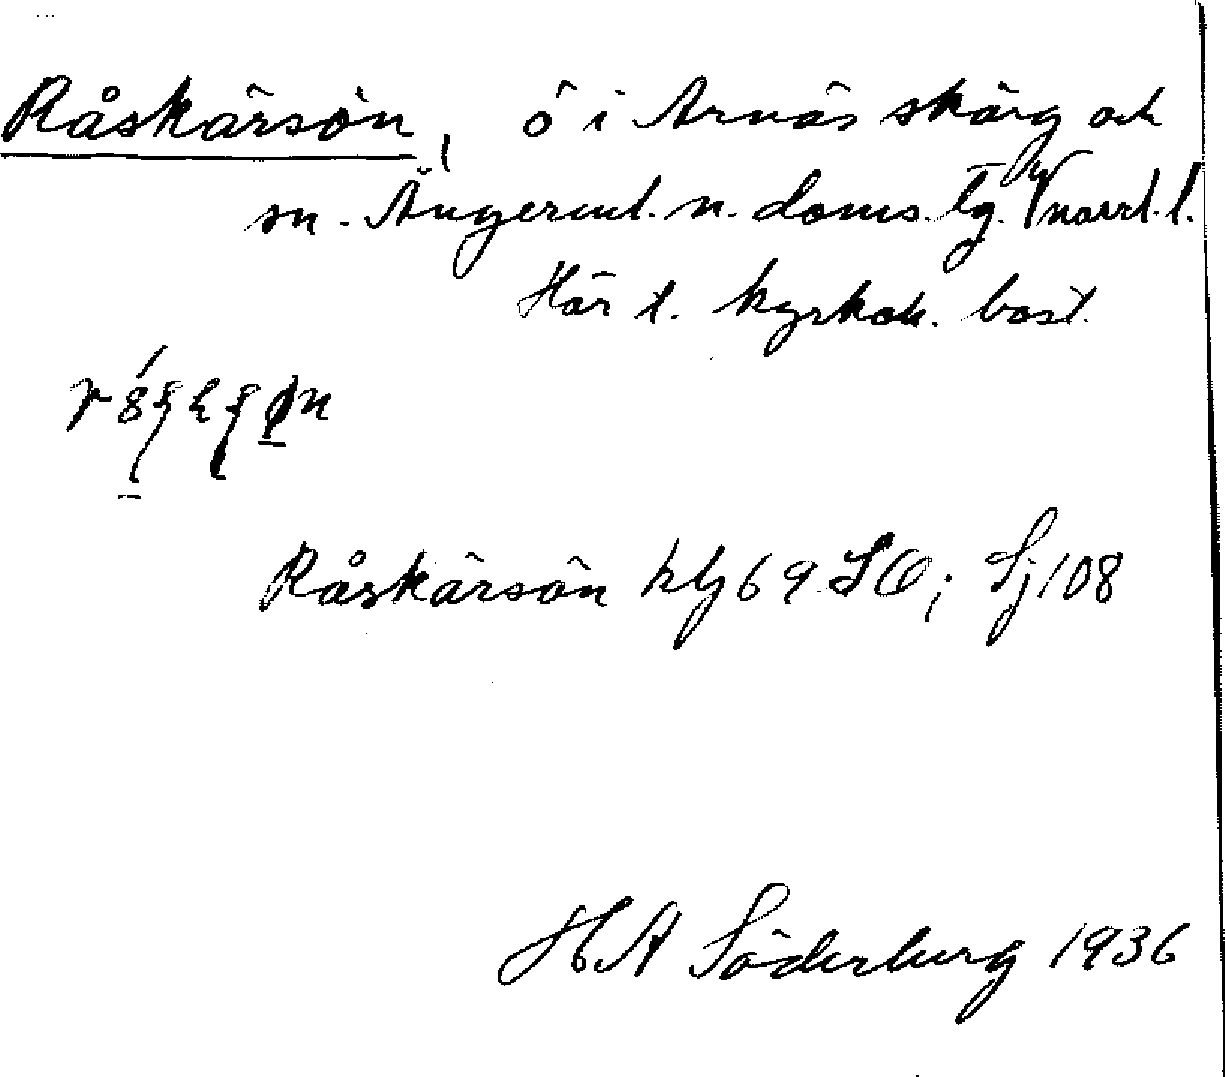 Råskärsön, ö i Arnäs skärg och
sn. Ångerml. n. doms. tg. V norrl. l.
Hör t. kyrkoh. bost.
Råskärsön hlg 69 SO; Sj 108
H A Söderberg 1936